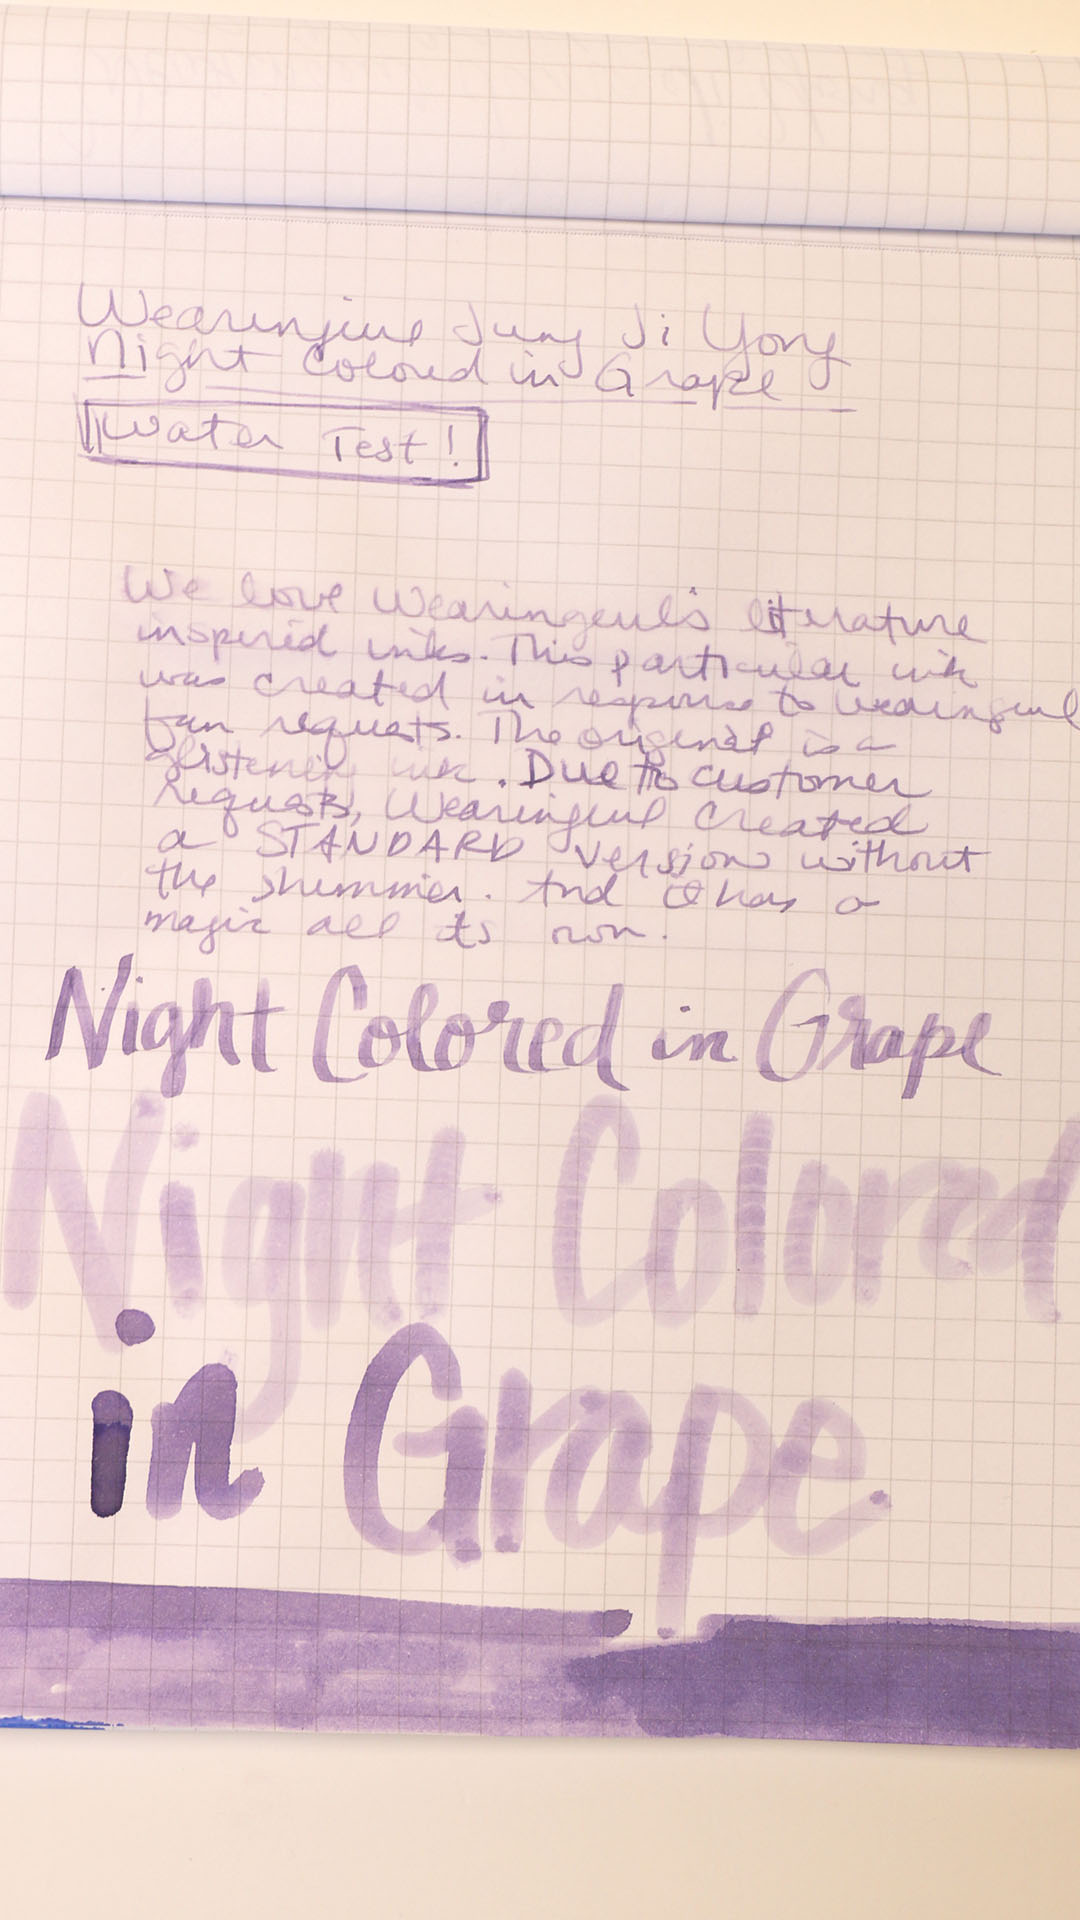 Wearingeul Jung Ji Yong
Night Colored in Grape
Water Test!
We love Wearingeul's literature
inspired inks. This particular ink
was created in response to wearingeul
fan requests. The original is a
glistening ink. Due to customer
requests, Wearingeul created
a STANDARD version without
the shimmer. And it has a
magic all its own.
Night Colored in Grape
Night Colored
in Grape